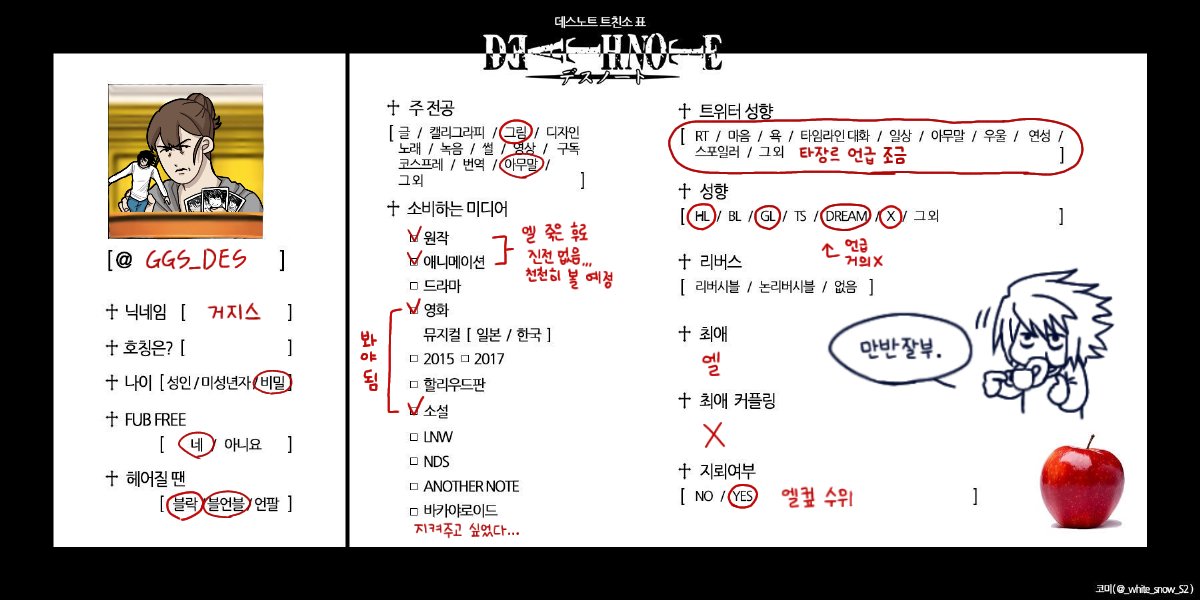 데스노트 트친소 표
DEATH NOTE
デスノート
[@ GGS_DES ]
† 닉네임 [ 거지스 ]
† 호칭은? [ ]
† 나이 [ 성인 / 미성년자 / 비밀 ]
† FUB FREE
[ 네 / 아니요 ]
† 헤어질 땐
[ 블락 / 블언블 / 언팔 ]
† 주 전공
[ 글 / 캘리그라피 / 그림 / 디자인
노래 / 녹음 / 썰 / 영상 / 구독
코스프레 / 번역 / 아무말 /
그외 ]
† 소비하는 미디어
원작
애니메이션
엘 죽은 후로
진전 없음,,,
천천히 볼 예정
드라마
영화
뮤지컬 [ 일본 / 한국 ]
2015 2017
할리우드판
소설
봐야됨
LNW
NDS
ANOTHER NOTE
바카야로이드
지켜주고 싶었다...
† 트위터 성향
[ RT / 마음 / 욕 / 타임라인 대화 / 일상 / 아무말 / 우울 / 연성 /
스포일러 / 그 외 타장르 언급 조금 ]
† 성향
[ HL / BL / GL / TS / DREAM / X / 그 외 ]
↑ 언급
거의 X
† 리버스
[ 리버시블 / 논리버시블 / 없음 ]
† 최애
엘
† 최애 커플링
X
† 지뢰여부
[ NO / YES 엘컾 수위 ]
만반잘부.
코미(@_white_snow_S2)